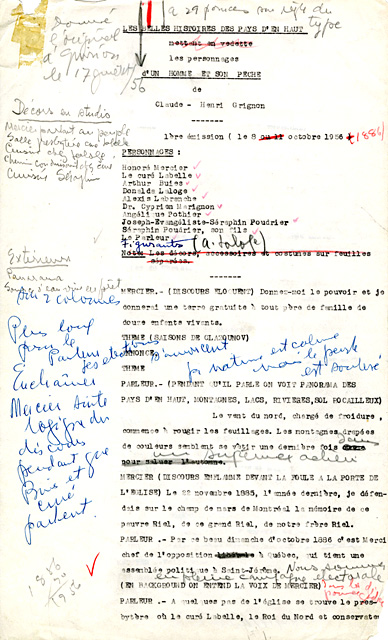 à 29 pouces
type
donné
l'original
à Guimon
le 17
56
LES BELLES HISTOIRES DES PAYS D'EN HAUT
mettent en vedette
les personnages
d'UN HOMME ET SON PECHE
de
Claude - Henri Grignon
1ère émission ( le 8 ou 11 octobre 1956 )
(1886)
Décors en studio
PERSONNAGES :
Honoré Mercier
Le curé Labelle
Arthur Buies
Donalda Laloge
Alexis Labranche
Dr. Cyprien Marignon
Angélique Pothier
Joseph-Evangéliste-Séraphin Poudrier
Séraphin Poudrier, son fils
Le Parleur
Figurants (A. Laloge)
Note: Les décors, accessoires et costumes sur feuilles
séparées.
Mercier parlant au peuple
Salle presbytère curé Labelle
Cuisine
Séraphin
Extérieurs
Panorama
2 colonnes
MERCIER.- (DISCOURS ELOQUENT) Donnez-moi le pouvoir et je
donnerai une terre gratuite à tout père de famille de
douze enfants vivants.
THEME (SAISONS DE GLAZOUNOV)
ANNONCE
THEME
PARLEUR.- (PENDANT QU'IL PARLE ON VOIT PANORAMA DES
PAYS D'EN HAUT, MONTAGNES, LACS, RIVIERES, SOL ROCAILLEUX)
Le vent du nord, chargé de froidure,
commence à rougir les feuillages. Les montagnes drapées
de couleurs semblent se vêtir une dernière fois
pour saluer l'automne.
un suprême adieu
Plus loin
pour le
Parleur
Enchaîner
Mercier
du
discours
pendant que
Buies et
curé
parlent.
nature est calme
mais le peuple
est soulevé
MERCIER (DISCOURS ENFLAMME DEVANT LA FOULE A LA PORTE DE
L'EGLISE) Le 22 novembre 1885, l'année dernière, je défen-
dais sur le champ de mars de Montréal la mémoire de ce
pauvre Riel, de ce grand Riel, de notre frère Riel.
PARLEUR .- Par ce beau dimanche d'octobre 1886 c'est Merci
chef de l'opposition libérale à Québec, qui tient une
assemblée politique à Saint-Jérôme. Nous sommes
en pleine campagne électorale
(EN BACKGROUND ON ENTEND LA VOIX DE MERCIER)
PARLEUR .- A quelques pas de l'église se trouve le pres-
bytère où le curé Labelle, le Roi du Nord et conservate
1886
1956